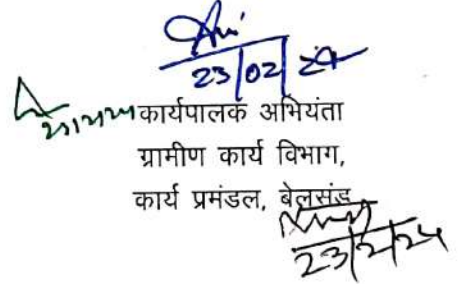 23/02/24
कार्यपालक अभियंता
ग्रामीण कार्य विभाग,
कार्य प्रमंडल, बेलसंड
23/2/24